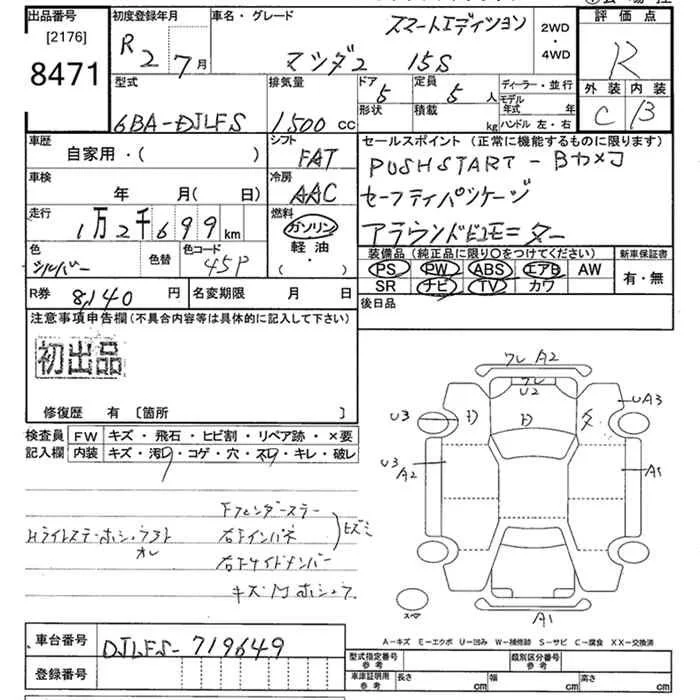 出品番号
[2176]
8471
初度登録年月
R 2 7月
車名・グレード
スマートエディション
マツダ2 15S
2WD
4WD
評価点
R
外装 内装
C B
型式
6BA-DJLFS
排気量
1500 cc
ドア 5
形状
定員 5 人
積載 kg
ディーラー・並行
モデル年式 年
ハンドル 左・右
車歴
自家用・( )
シフト
FAT
車検
年 月( 日)
冷房
AAC
走行
1万2千699km
燃料
ガソリン
軽油
( ・ )
色
シルバー
色替
色コード
45P
セールスポイント(正常に機能するものに限ります)
PUSHSTART - Bカメラ
セーフティパッケージ
アラウンドビューモニター
装備品(純正品に限り○をつけてください)
PS PW ABS エアB AW
SR ナビ TV カワ
新車保証書
有・無
R券 8,140 円
名変期限 月 日
後日品
注意事項申告欄(不具合内容等は具体的に記入して下さい)
初出品
修復歴 有 〔箇所 〕
検査員記入欄
FW キズ・飛石・ヒビ割・リペア跡・×要
内装 キズ・汚レ・コゲ・穴・スレ・キレ・破レ
Fフェンダーステー
右Fインパネ
右Fサイドメンバー
ヒズミ
キズ
ワレ A2
ワレ
U2
UA3
U3
U3
A2
A1
A1
スペア
A-キズ E-エクボ U-凹み W-補修跡 S-サビ C-腐食 XX-交換済
車台番号
DJLFS-719649
登録番号
型式指定番号
参考
類別区分番号
参考
車庫証明用
参考
長さ cm
幅 cm
高さ cm